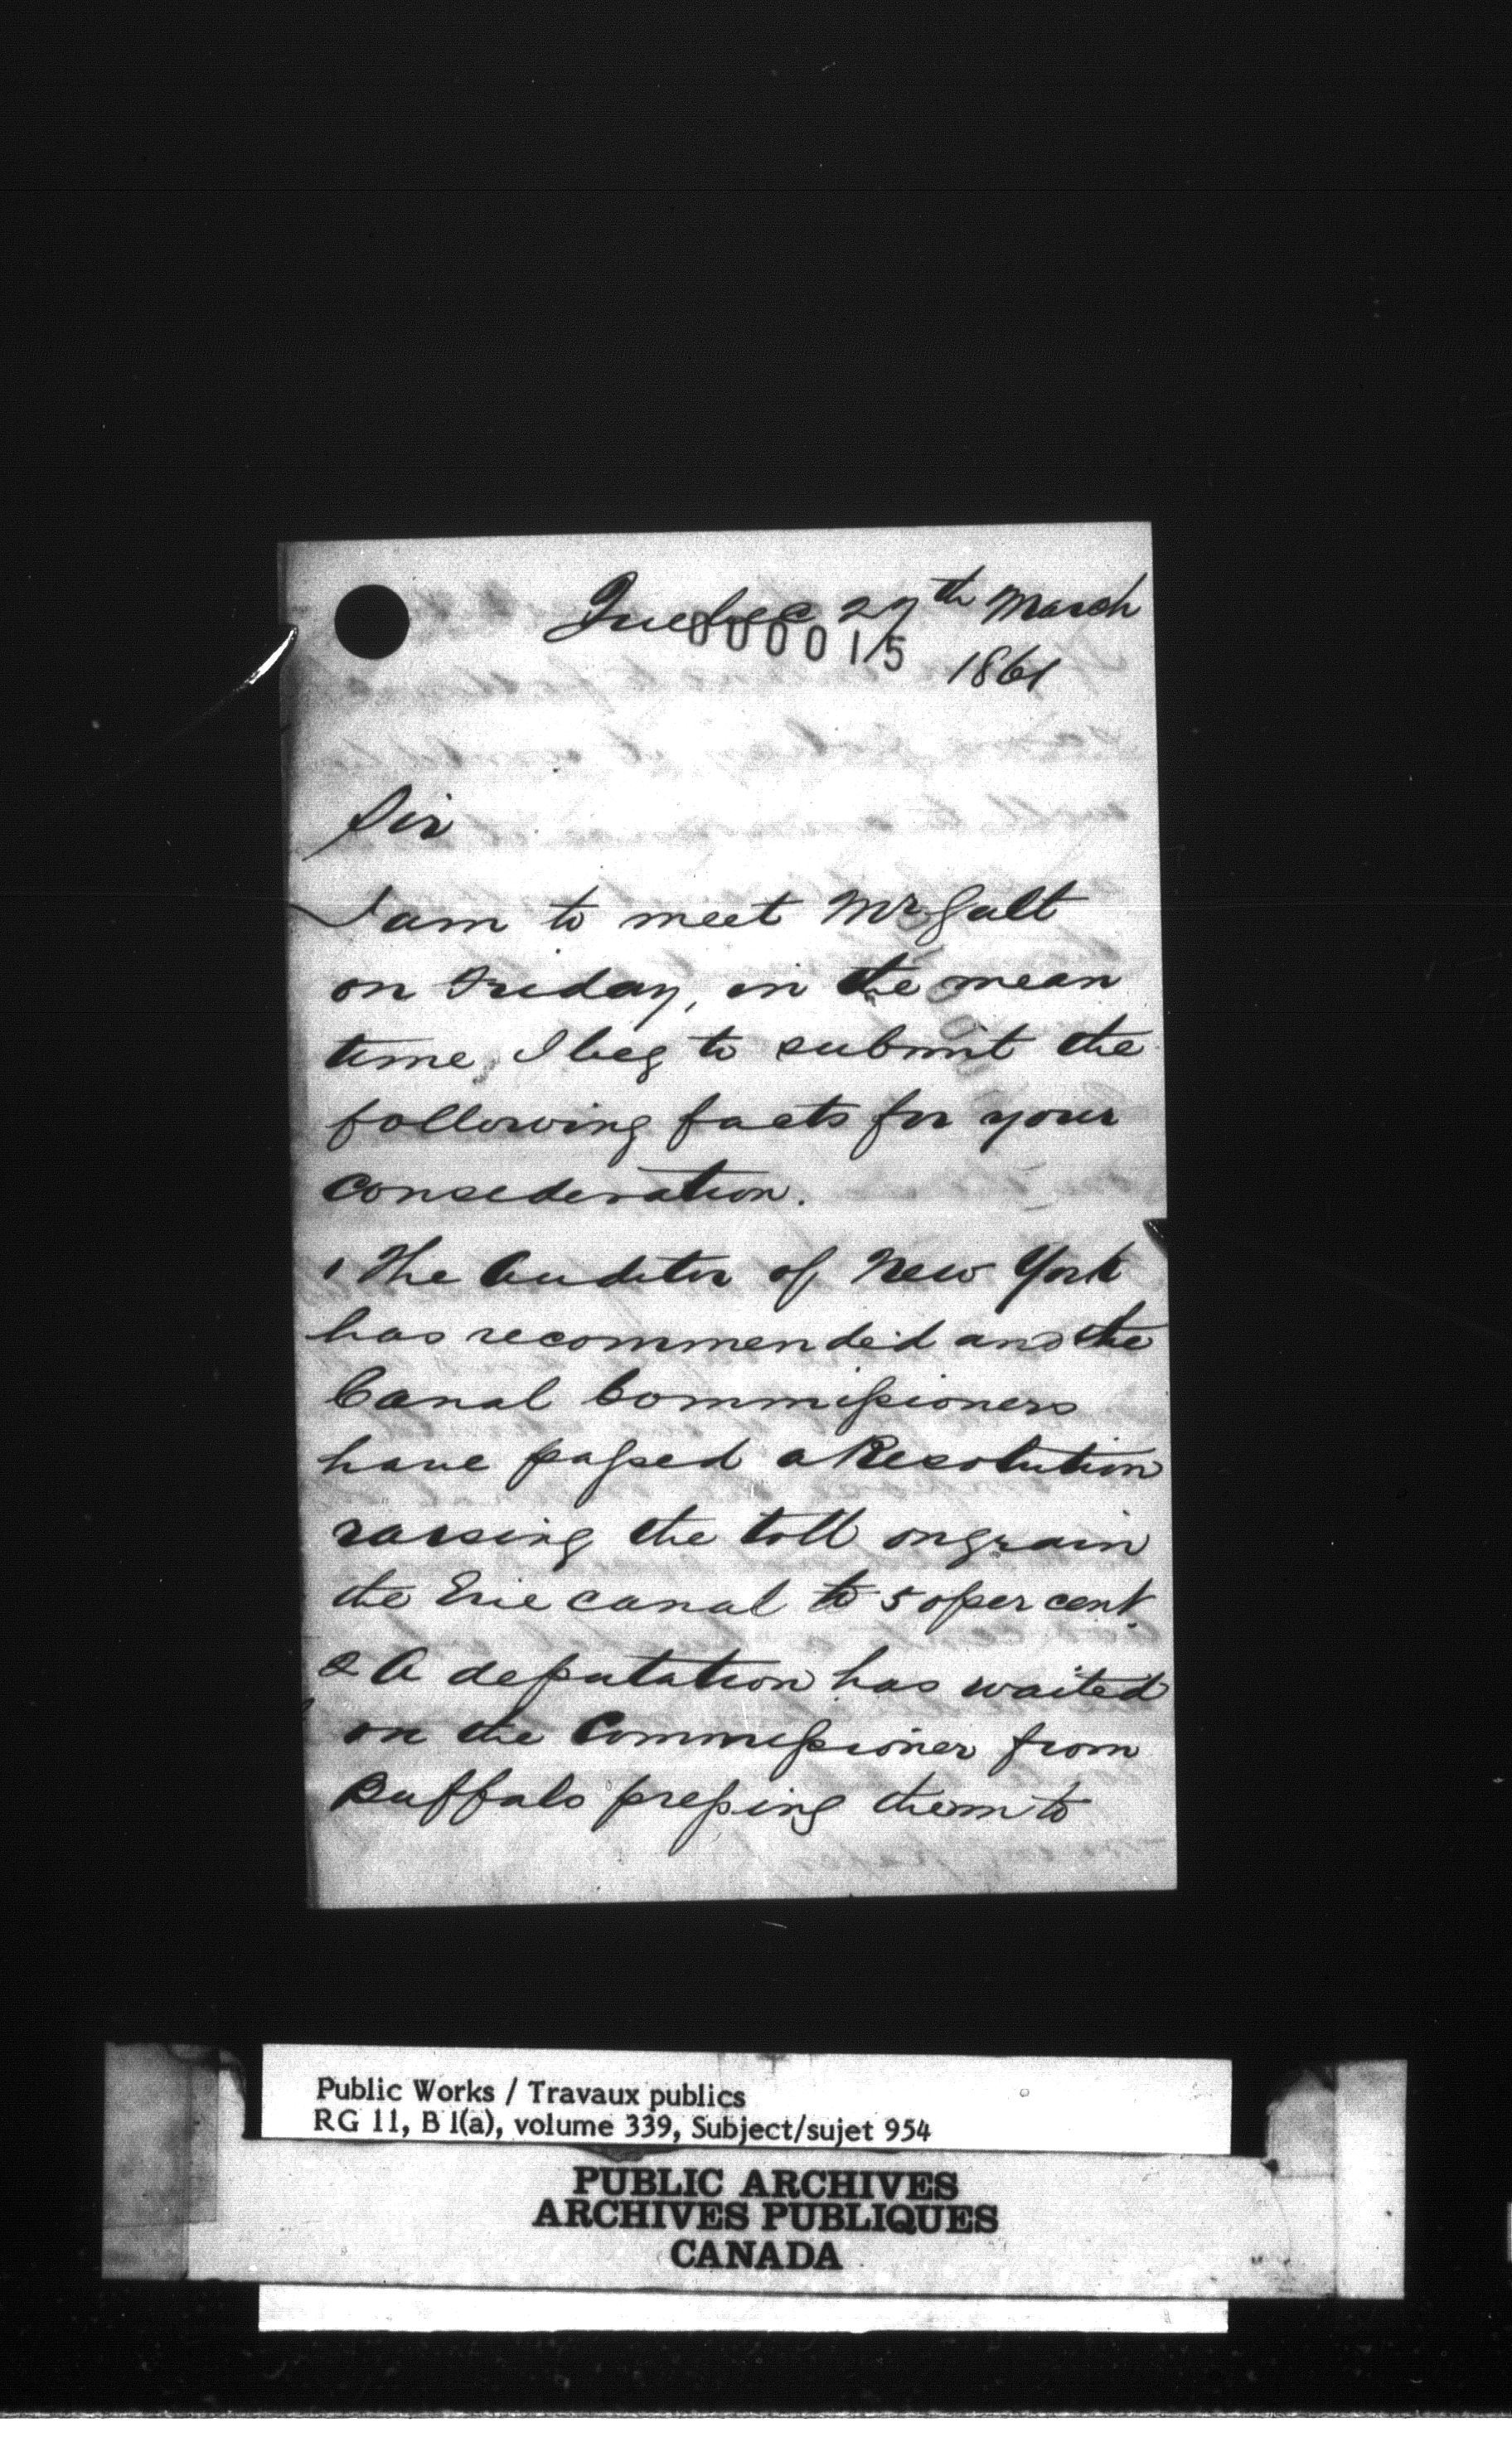 Quebec 27th March
000015
1861
Sir
I am to meet Mr Galt
on Friday, in the mean
time, I beg to submit the
following facts for your
consideration.
1 The Auditor of New York
has recommended and the
Canal Commissioners
have passed a Resolution
raising the toll on grain
the Erie canal to 50 per cent.
2 A deputation has waited
on the Commissioner from
Buffalo pressing them to
Public Works / Travaux publics
RG 11, B 1(a), volume 339, Subject/sujet 954
PUBLIC ARCHIVES
ARCHIVES PUBLIQUES
CANADA